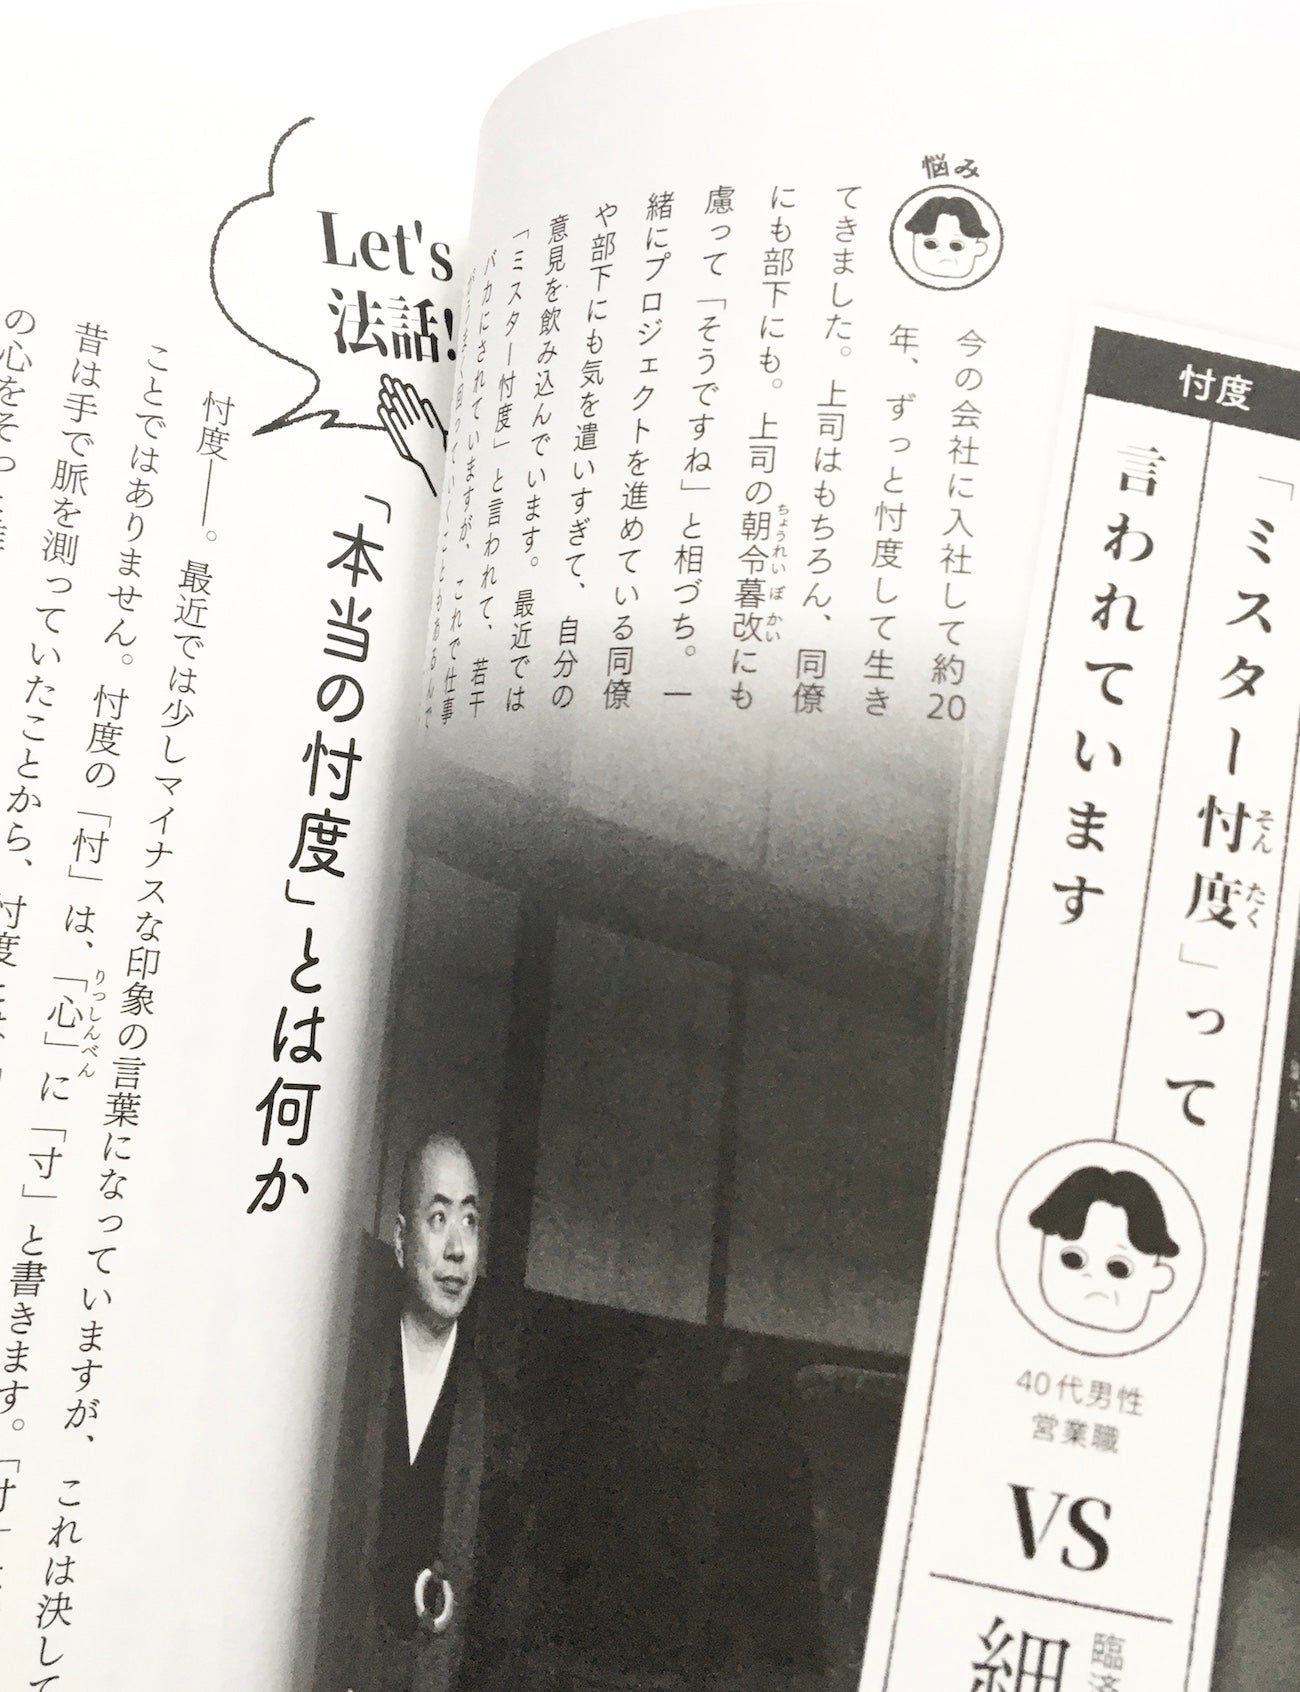 忖度
「ミスター忖度」って
そんたく
言われています
40代男性
営業職
VS
臨済
細
悩み
今の会社に入社して約20
年、ずっと忖度して生き
てきました。上司はもちろん、同僚
にも部下にも。上司の朝令暮改にも
ちょうれいぼかい
慮って「そうですね」と相づち。一
緒にプロジェクトを進めている同僚
や部下にも気を遣いすぎて、自分の
意見を飲み込んでいます。最近では
「ミスター忖度」と言われて、若干
バカにされていますが、これで仕事
Let's
法話!
「本当の忖度」とは何か
忖度――。最近では少しマイナスな印象の言葉になっていますが、これは決して
ことではありません。忖度の「忖」は、「心」に「寸」と書きます。「寸」
りっしんべん
昔は手で脈を測っていたことから、忖度
の心をそっと